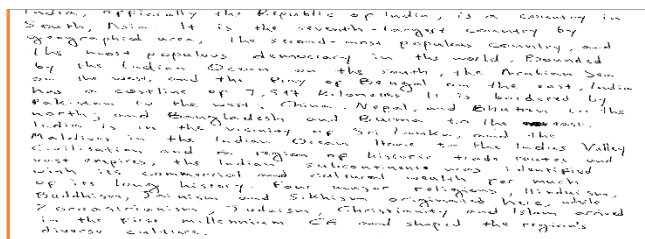 India, officially the Republic of India, is a country in
South, Asia It is the seventh-largest country by
geographical area, the second-most populous country, and
the most populous democracy in the world. Bounded
by the Indian Ocean on the south, the Arabian Sea
on the west, and the Bay of Bengal on the east, India
has a costline of 7,517 kilometres It is bordered by
Pakistan to the west; China, Nepal, and Bhutan to the
north; and Bangladesh and Burma to the
India is in the vicinity of Sri Lanka, and the
Maldives in the Indian Ocean Home to the Indus Valley
Civilisation and a region of historic trade routes and
vast empires, the Indian subcontinente was identified
with its commercial and cultural wealth for much
of its long history. Four major religions, Hinduism,
Buddhism, Jainism and Sikhism originated here, while
Zoroastrionism, Judaism, Christianity and Islam arrived
in the first millennium CE and shaped the region's
diverse culture.